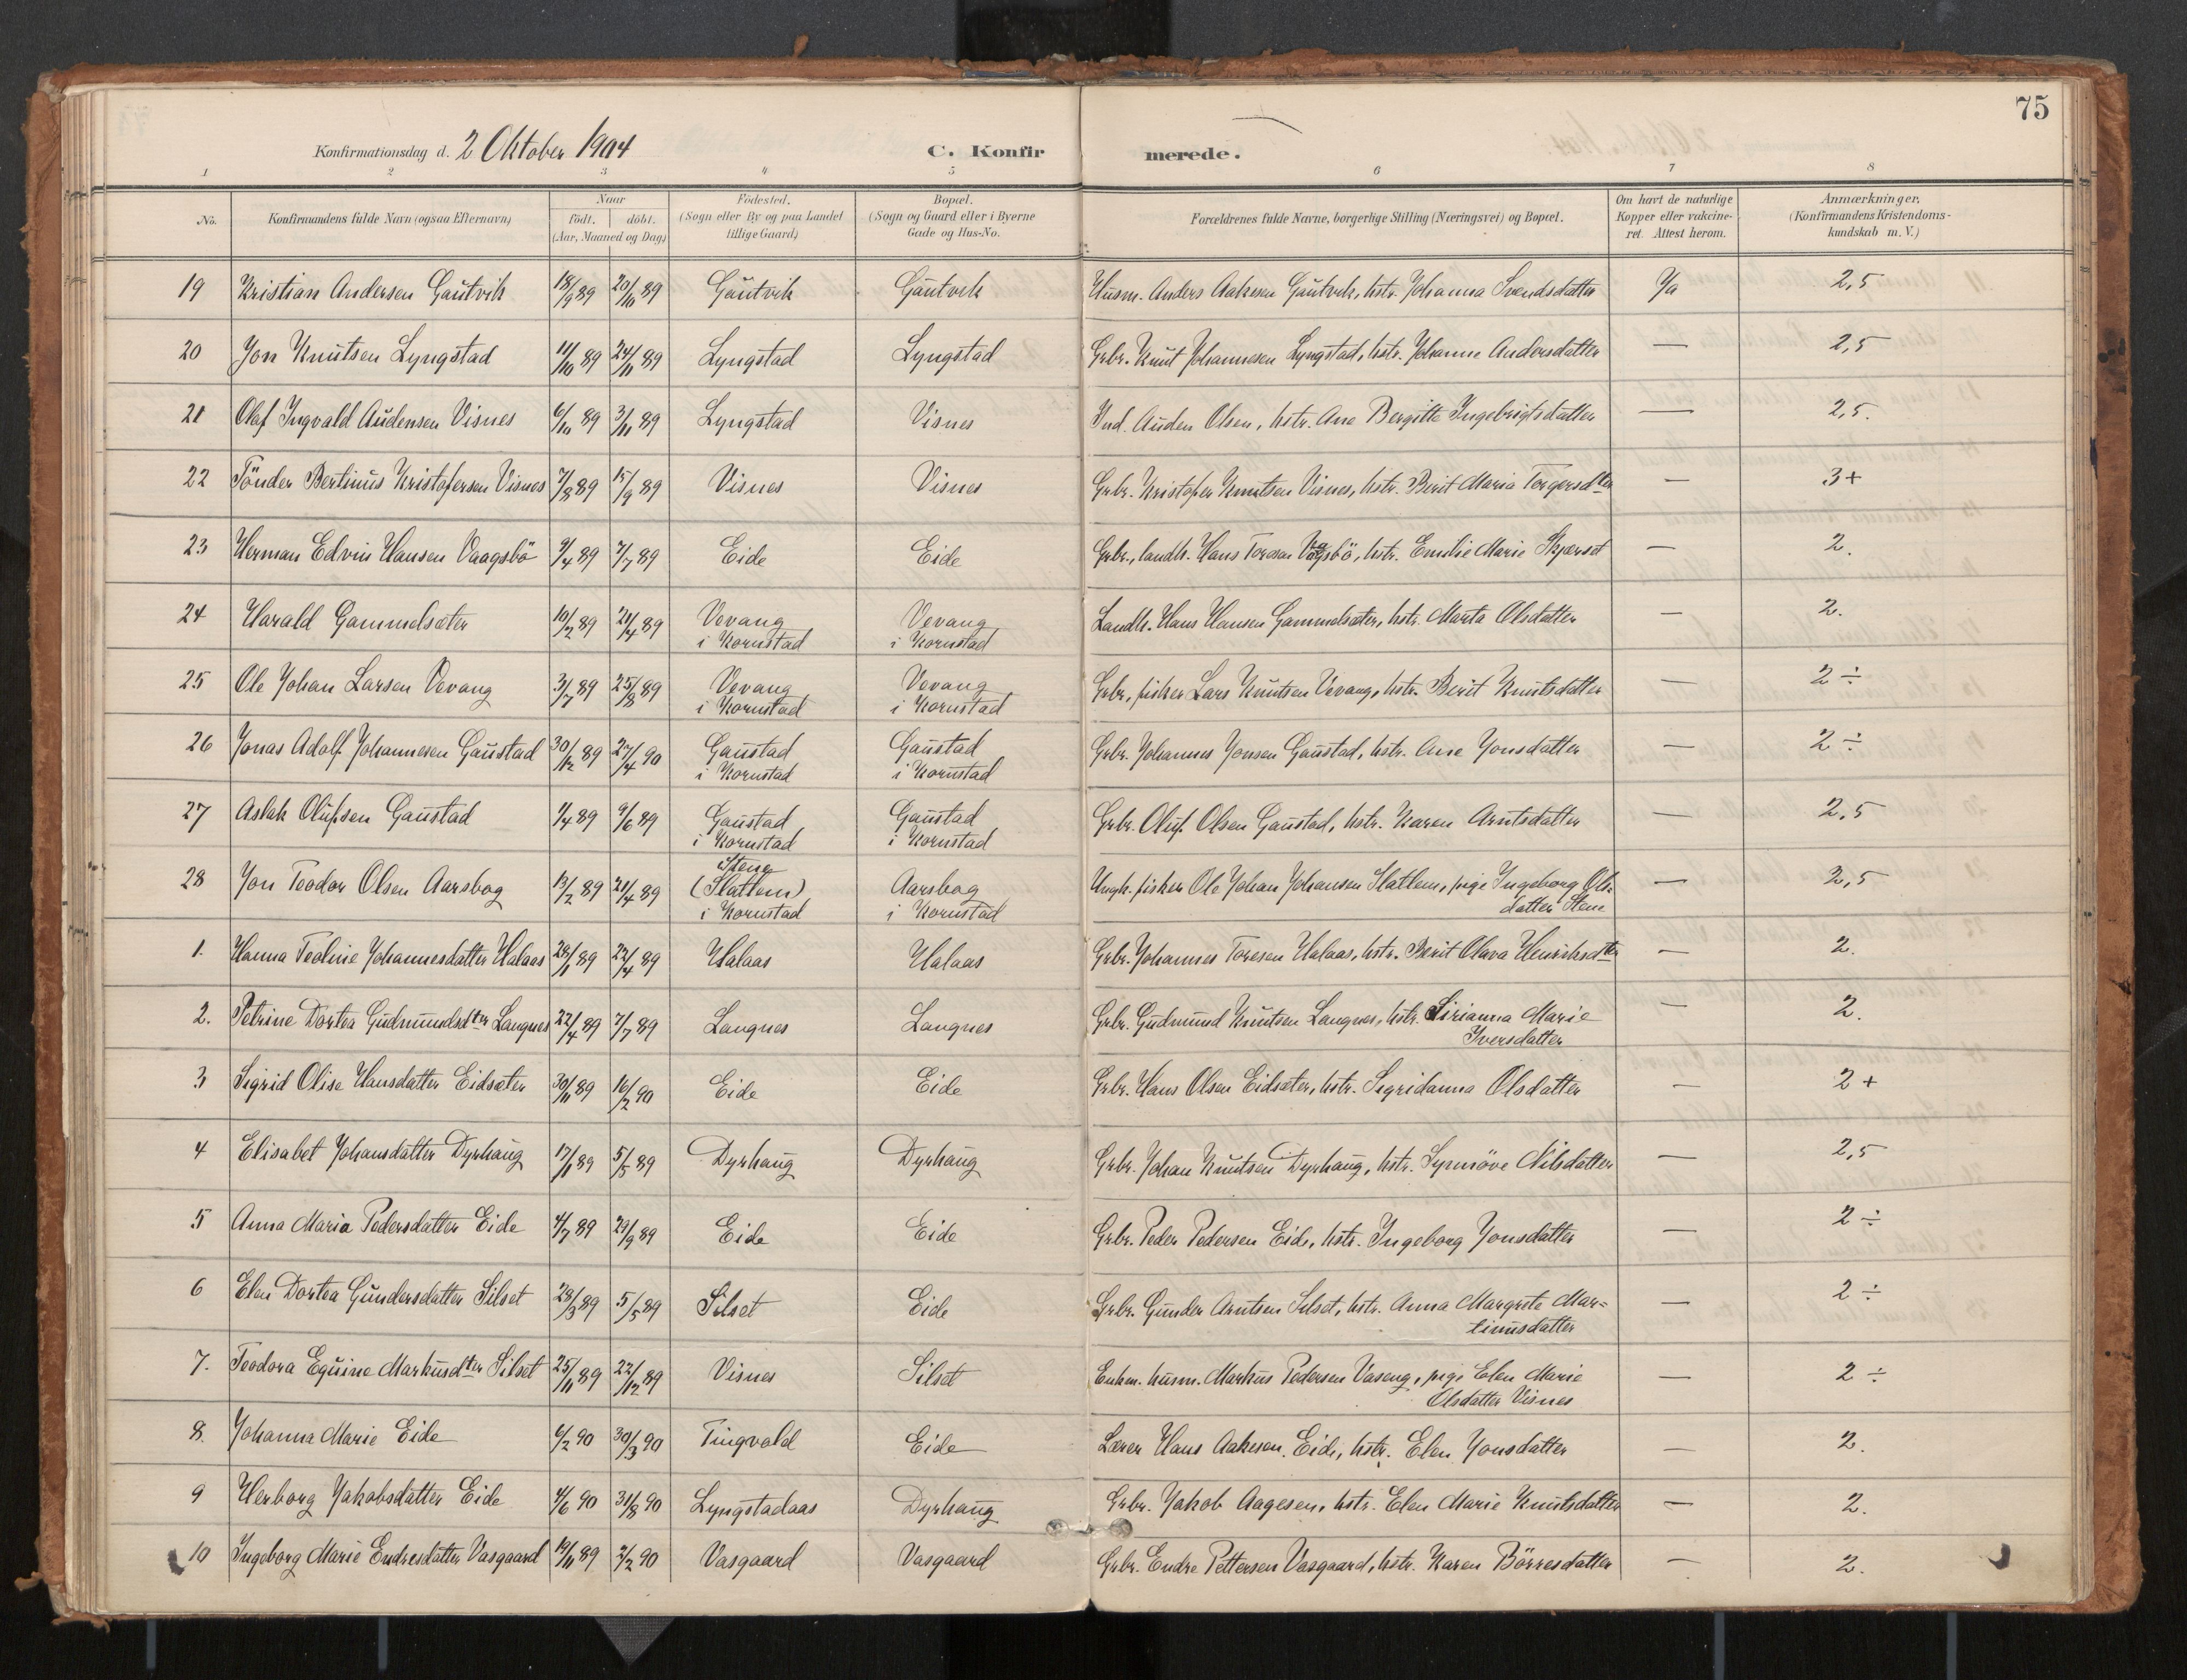 75
Konfirmationsdag d. 2 Oktober 1904 C. Konfirmerede.
1 2 3 4 5 6 7 8
No. Konfirmandens fulde Navn (ogsaa Efternavn) Naar födt. döbt. (Aar, Maaned og Dag) Födested. (Sogn eller By og paa Landet tillige Gaard) Bopæl. (Sogn og Gaard eller i Byerne Gade og Hus-No. Forældrenes fulde Navne, borgerlige Stilling (Næringsvei) og Bopæl. Om havt de naturlige Kopper eller vakcineret. Attest herom. Anmærkninger. (Konfirmandens Kristendomskundskab m. V.)
19 Kristian Andersen Gautvik 18/9 89 20/10 89 Gautvik Gautvik Husm. Anders Aakesen Gautvik, hstr. Johanna Svendsdatter Ja 2,5
20 Jon Knutsen Lyngstad 11/10 89 24/11 89 Lyngstad Lyngstad Grbr. Knut Johannesen Lyngstad, hstr. Johanne Andersdatter — 2,5
21 Olaf Ingvald Audensen Visnes 6/10 89 3/11 89 Lyngstad Visnes Ind. Auden Olsen, hstr. Ane Bergitte Ingebrigtsdatter — 2,5.
22 Tönder Bertinus Kristofersen Visnes 7/8 89 15/9 89 Visnes Visnes Grbr. Kristofer Knutsen Visnes, hstr. Berit Maria Torgersdter — 3+
23 Herman Edvin Hansen Vaagsbö 9/4 89 7/7 89 Eide Eide Grbr., landh. Hans Toresen Vaagsbö, hstr. Emilie Marie Skjærset — 2.
24 Harald Gammelsæter 10/2 89 21/4 89 Vevang i Kornstad Vevang i Kornstad Landh. Hans Hansen Gammelsæter, hstr. Marta Olsdatter — 2.
25 Ole Johan Larsen Vevang 3/7 89 25/8 89 Vevang i Kornstad Vevang i Kornstad Grbr., fisker Lars Knutsen Vevang, hstr. Berit Knutsdatter — 2 ÷
26 Jonas Adolf Johannesen Gaustad 30/12 89 27/4 90 Gaustad i Kornstad Gaustad i Kornstad Grbr. Johannes Jonsen Gaustad, hstr. Ane Jonsdatter — 2 ÷
27 Aslak Olufsen Gaustad 1/4 89 9/6 89 Gaustad i Kornstad Gaustad i Kornstad Grbr. Oluf Olsen Gaustad, hstr. Karen Arntsdatter — 2,5
28 Jon Teodor Olsen Aarsbog 13/2 89 21/4 89 Stene (Slatlem) i Kornstad Aarsbog i Kornstad Ungk. fisker Ole Johan Johansen Slatlem, pige Ingeborg Ols-
datter Stene — 2,5
1. Hanna Teoline Johannesdatter Halaas 28/1 89 22/4 89 Halaas Halaas Grbr. Johannes Toresen Halaas, hstr. Berit Olava Henriksdter — 2.
2. Petrine Dortea Gudmundsdter Langnes 22/4 89 7/7 89 Langnes Langnes Grbr. Gudmund Knutsen Langnes, hstr. Sirianna Marie
Iversdatter — 2.
3 Sigrid Olise Hansdatter Eidsæter 30/11 89 16/2 90 Eide Eide Grbr. Hans Olsen Eidsæter, hstr. Sigridanna Olsdatter — 2 +
4 Elisabet Johansdatter Dyrhaug 17/1 89 5/5 89 Dyrhaug Dyrhaug Grbr. Johan Knutsen Dyrhaug, hstr. Synnöve Nilsdatter — 2,5
5 Anna Maria Pedersdatter Eide 4/7 89 29/9 89 Eide Eide Grbr. Peder Pedersen Eide, hstr. Ingeborg Jonsdatter — 2 ÷
6 Elen Dortea Gundersdatter Silset 28/3 89 5/5 89 Silset Eide Grbr. Gunder Arntsen Silset, hstr. Anna Margrete Mar=
tinusdatter — 2 ÷
7. Teodora Eguine Markusdter Silset 25/11 89 22/12 89 Visnes Silset Enkm. husm. Markus Pedersen Vaseng, pige Elen Marie
Olsdatter Visnes — 2 ÷
8. Johanna Marie Eide 6/2 90 30/3 90 Tingvold Eide Lærer Hans Aakesen Eide, hstr. Elen Jonsdatter — 2.
9 Herborg Jakobsdatter Eide 4/6 90 31/8 90 Lyngstadaas Dyrhaug Grbr. Jakob Aagesen, hstr. Elen Marie Knutsdatter — 2.
10 Ingeborg Marie Endresdatter Vasgaard 19/11 89 2/2 90 Vasgaard Vasgaard Grbr. Endre Pettersen Vasgaard, hstr. Karen Börresdatter — 2.